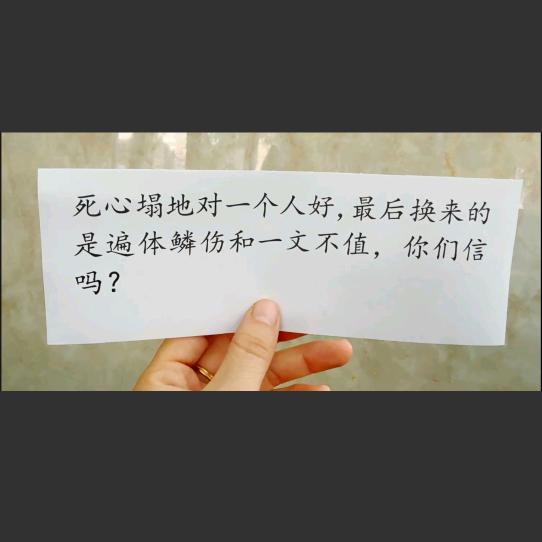 死心塌地对一个人好,最后换来的
是遍体鳞伤和一文不值，你们信
吗？